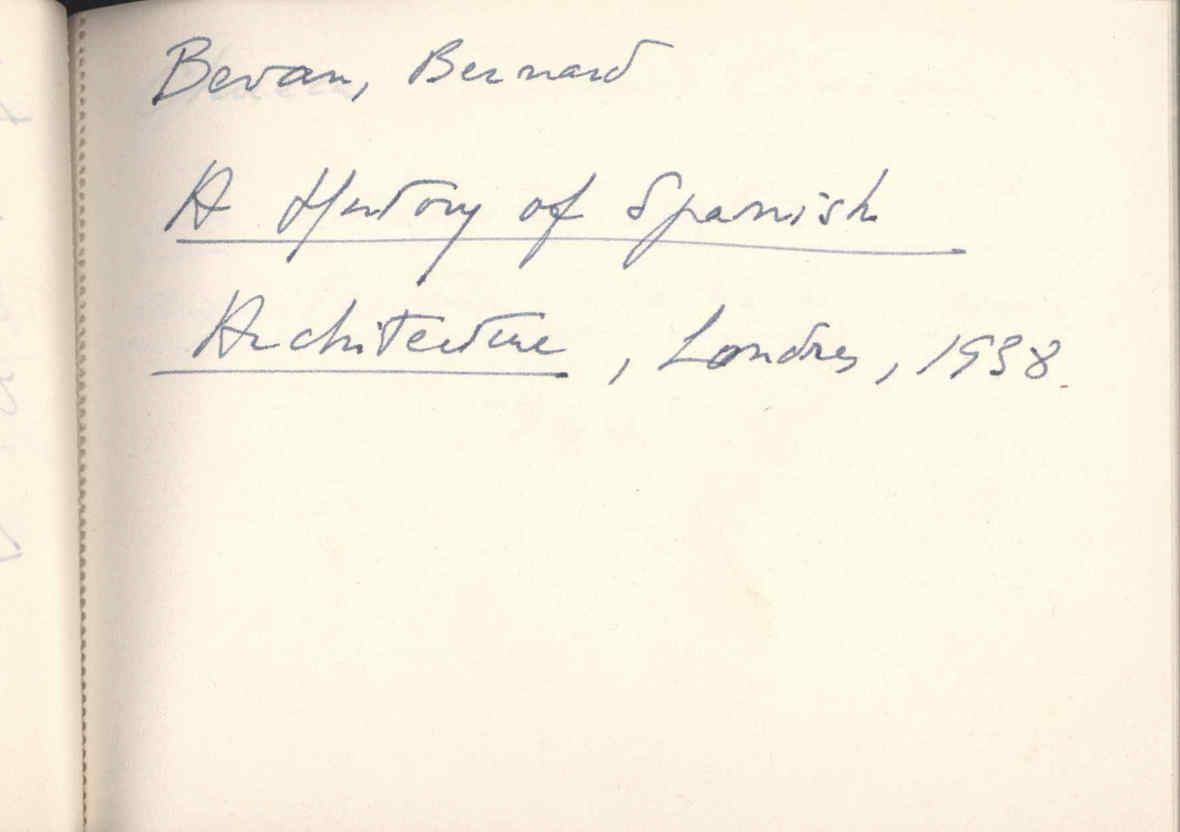 Bevan, Bernard
A History of Spanish
Architecture, Londres, 1938.